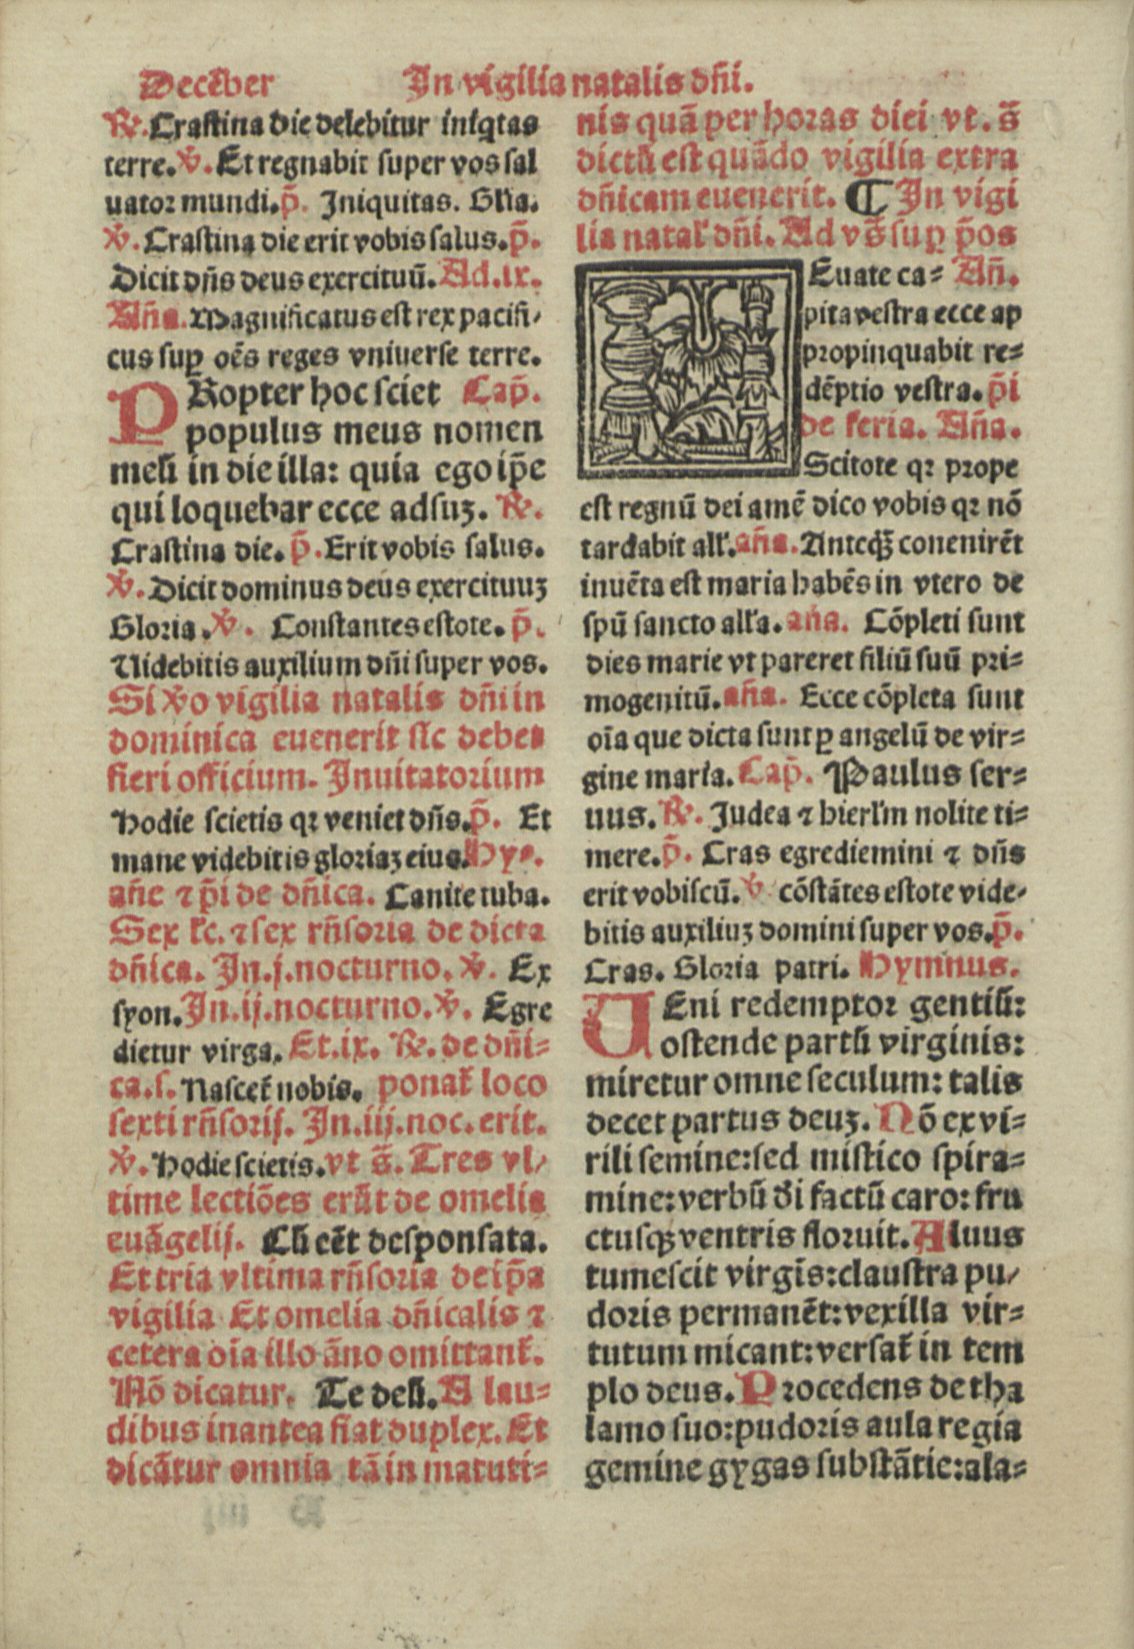 Decēber In vigilia natalis dñi.
℟. Crastina die delebitur iniqtas
terre. ℣. Et regnabit super vos sal
uator mundi. p̄. Iniquitas. Glīa.
℣. Crastina die erit vobis salus. p̄.
Dicit dñs deus exercituū. Ad .ix.
Aña. Magnificatus est rex pacifi/
cus suꝑ oēs reges vniuerse terre.
PRopter hoc sciet Cap̄.
populus meus nomen
meū in die illa: quia ego ip̄e
qui loquebar ecce adsuꝫ. ℟.
Crastina die. p̄. Erit vobis salus.
℣. Dicit dominus deus exercituuꝫ
Gloria. ℣. Constantes estote. p̄.
Uidebitis auxilium dñi super vos.
Si ℣o vigilia natalis dñi in
dominica euenerit sic debet
fieri officium. Inuitatorium
Hodie scietis qꝛ veniet dñs. p̄. Et
mane videbitis gloriaꝫ eius. Hyᵒ.
añe ⁊ p̄i de dñica. Canite tuba.
Sex lc. ⁊ sex rñsoria de dicta
dñica. In .j. nocturno. ℣. Ex
syon. In .ij. nocturno. ℣. Egre
dietur virga. Et .ix. ℟. de dñi=
ca. s. Nascet̄ nobis. ponat̄ loco
sexti rñsorij. In .iij. noc. erit.
℣. Hodie scietis. vt s̄. Tres vl/
time lectiōes erūt de omelia
euāgelij. Cū eēt desponsata.
Et tria vltima rñsoria de ip̄a
vigilia Et omelia dñicalis ⁊
cetera oīa illo āno omittant̄.
Nō dicatur. Te deū. A lau=
dibus inantea fiat duplex. Et
dicātur omnia tā in matuti=
nis quā per horas diei vt. s̄
dictū est quādo vigilia extra
dñicam euenerit. ¶ In vigi
lia natal̕ dñi. Ad vs̄ suꝑ p̄os
Euate ca= Añ.
pita vestra ecce ap
propinquabit re=
dēptio vestra. p̄i
de feria. Aña.
Scitote qꝛ prope
est regnū dei amē dico vobis qꝛ nō
tardabit all̕. aña. Anteqꝫ conenirēt
inuēta est maria habēs in vtero de
spū sancto all̕a. aña. Cōpleti sunt
dies marie vt pareret filiū suū pri=
mogenitū. aña. Ecce cōpleta sunt
oīa que dicta sunt ꝑ angelū de vir=
gine maria. Cap̄. Paulus ser=
uus. ℟. Judea ⁊ hierl̕m nolite ti=
mere. p̄. Cras egrediemini ⁊ dñs
erit vobiscū. ℣ cōstātes estote vide/
bitis auxiliuꝫ domini super vos. p̄.
Cras. Gloria patri. Hymnus.
UEni redemptor gentiū:
ostende partū virginis:
miretur omne seculum: talis
decet partus deuꝫ. Nō ex vi=
rili semine: sed mistico spira=
mine: verbū d̄i factū caro: fru
ctusqꝫ ventris floruit. Aluus
tumescit virgīs: claustra pu/
doris permanēt: vexilla vir=
tutum micant: versat̄ in tem
plo deus. Procedens de tha
lamo suo: pudoris aula regia
gemine gygas substātie: ala=